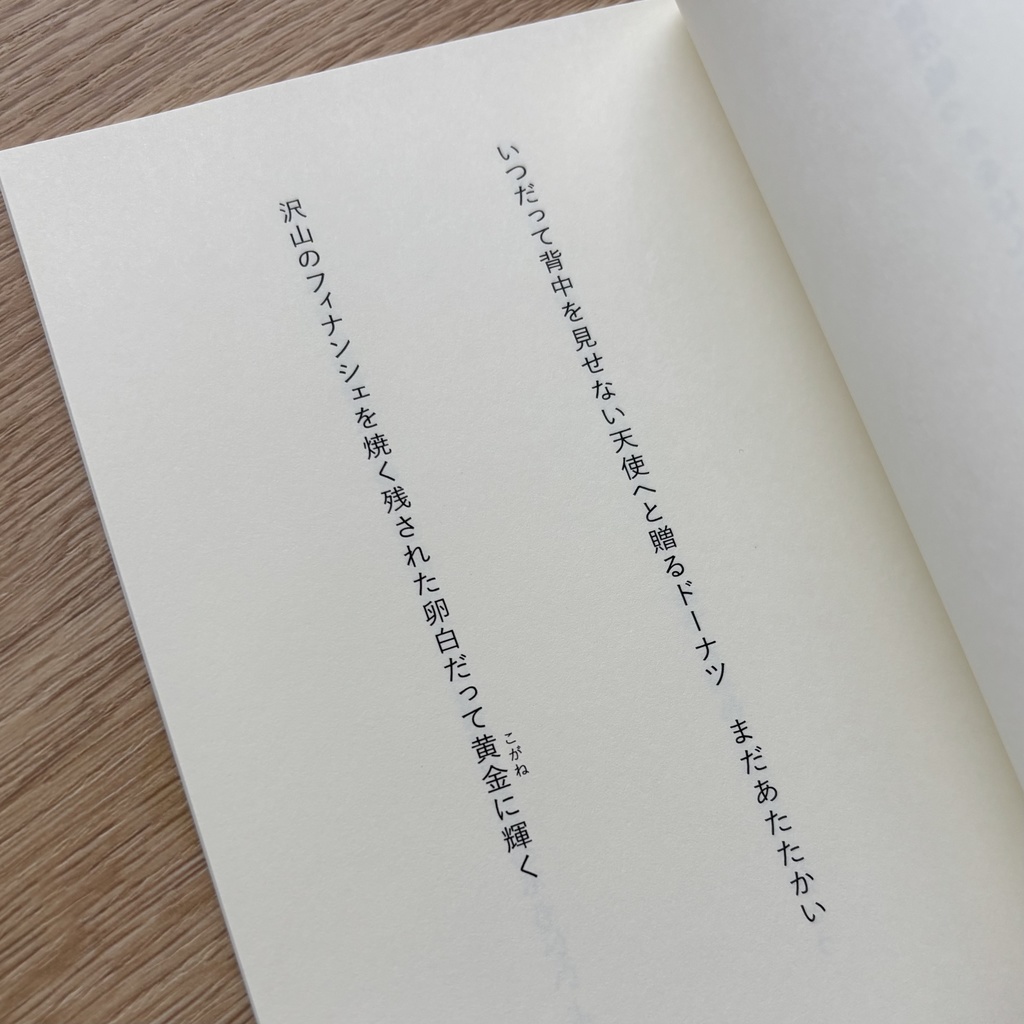 いつだって背中を見せない天使へと贈るドーナツ　まだあたたかい
沢山のフィナンシェを焼く残された卵白だって黄金に輝く
こがね